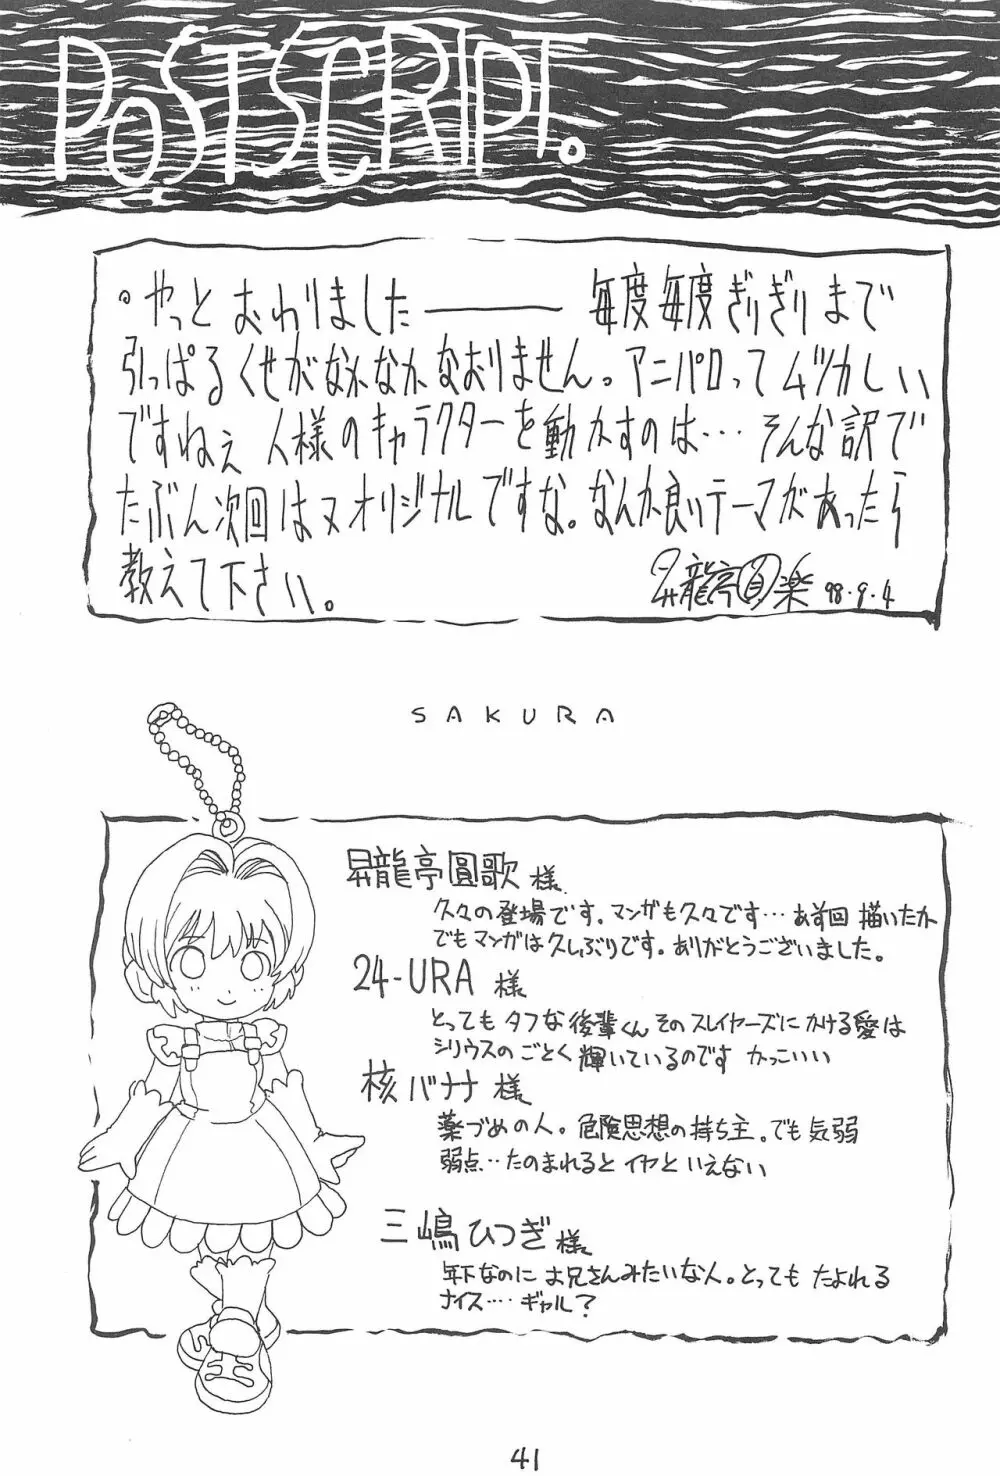 POSTSCRIPT.
。やっとおわりました――― 毎度毎度ぎりぎりまで
引っぱるくせがなかなかなおりません。アニパロってムヅカしい
ですねぇ 人様のキャラクターを動かすのは… そんな訳で
たぶん次回はオリジナルですな。なんか良いテーマがあったら
教えて下さい。
昇龍亭圓楽 98.9.4
SAKURA
昇龍亭圓歌様
久々の登場です。マンガも久々です…あす回描いたか
でもマンガは久しぶりです。ありがとうございました。
24-URA 様
とってもタフな後輩くんそのスレイヤーズにかける愛は
シリウスのごとく輝いているのです かっこいい
核バナナ様
薬づめの人。危険思想の持ち主。でも気弱
弱点…たのまれるとイヤといえない
三嶋ひつぎ様
年下なのにお兄さんみたいな人。とってもたよれる
ナイス…ギャル?
41